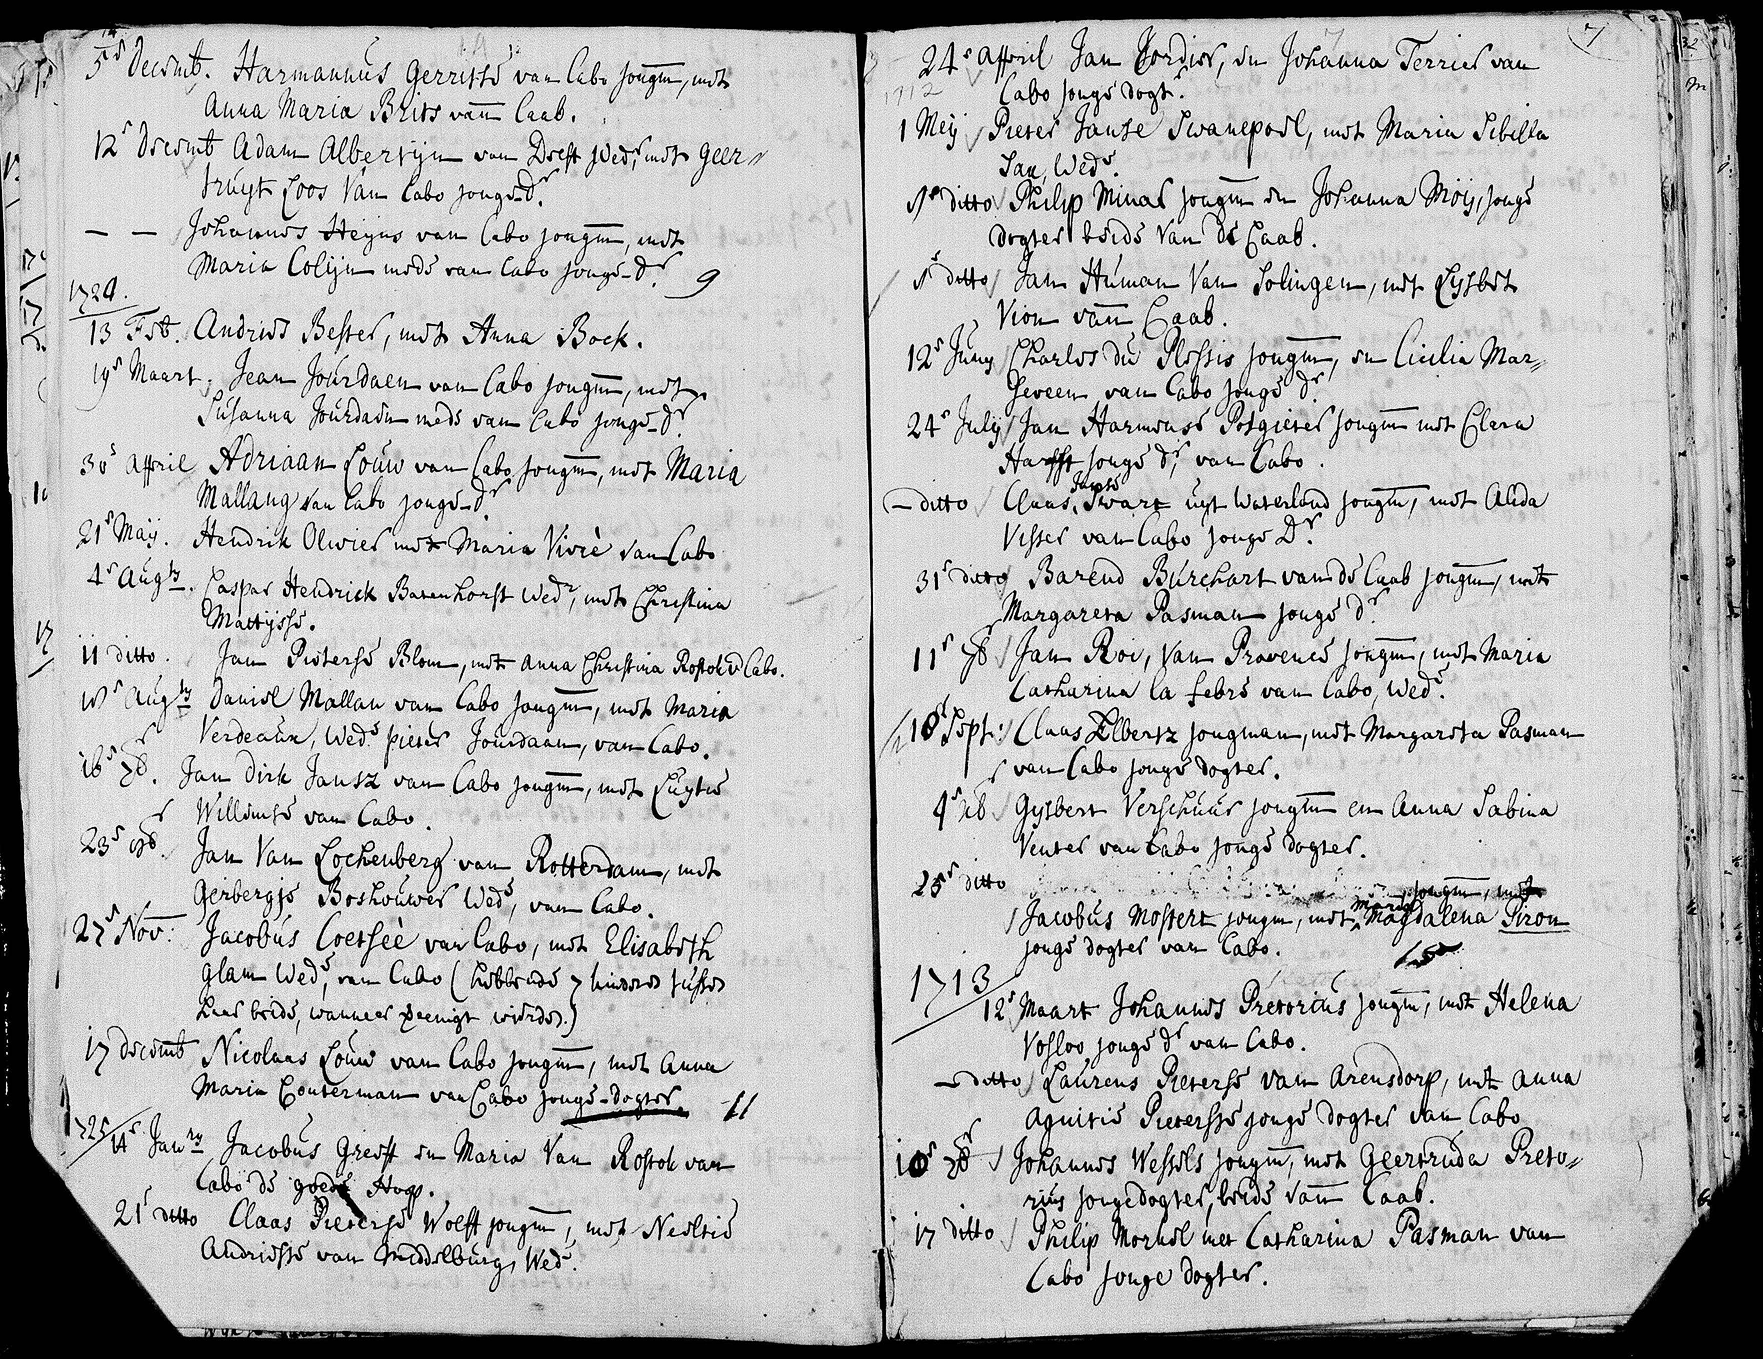 5e Decemb. Harmannus Gerritse van Cabo jongm, met
Anna Maria Brits van Caab.
12e Decemb Adam Albertijn van Delft Wedr, met Geer-
truyt Loos Van Cabo jonge Dr.
— — Johannes Heyns van Cabo jongm, met
Maria Colijn mede van Cabo jonge Dr. 9
1724.
13 Feb. Andries Bester, met Anna Bock.
19e Maart. Jean Jourdaen van Cabo jongm, met
Susanna Jourdaen mede van Cabo jonge Dr.
30e April Adriaan Louw van Cabo jongm, met Maria
Mallang van Cabo jonge Dr.
21e Maij. Hendrik Olivier met Maria Viviè van Cabo
4e Augts. Caspar Hendrick Batenhorst Wedr, met Christina
Mattijsse.
11 ditto. Jan Pieterse Blom, met Anna Christina Rostok v Cabo.
Augts Daniel Mallan van Cabo jongm, met Maria
Verdeaux, Wede pieter Jourdaan, van Cabo.
Jan Dirk Jansz van Cabo jongm, met Luytie
Willemse van Cabo.
23e Jan Van Lochenberg van Rotterdam, met
Gerbergje Boshouwer Wede, van Cabo.
27e Nov: Jacobus Coetseè van Cabo, met Elisabeth
Glam Wede, van Cabo (hebbende 7 kinderen tussen
haar beide, wanneer vereenigt wierden.)
17 decemb Nicolaas Louw van Cabo jongm, met Anna
Maria Couterman van Cabo jonge-dogter. 11
1725
14e Janry Jacobus Greeff en Maria Van Rostok van
Cabo de goede Hoop.
21e ditto Claas Pieterse Wolff jongm, met Neeltie
Andriesse van Middelburg, Wede.
7
24e April Jan Cordier, en Johanna Terrier van
1712 Cabo jonge dogtr.
1 Meij Pieter Janse Swanepoel, met Maria Sibilla
Sau, Wede.
ditto Philip Minar jongm en Johanna Moij, jonge
dogter beide Van de Caab.
ditto Jan Human Van Solingen, met Lysbet
Vion van Caab.
12e Juny Charles du Plessis jongm, en Cicilia Mar-
seveen van Cabo jonge dr.
24e July Jan Harmense Potgieter jongm met Clara
Harfst jonge dr, van Cabo.
— ditto Claas Janse Swart uyt Waterland jongm, met Alida
Visser van Cabo jonge Dr.
31e ditto Barend Burchart van de Caab jongm, met
Margareta Pasman jonge dr.
11e 7br Jan Roi, Van Provence jongm, met Maria
Catharina la Febre van Cabo, Wede.
18 Sept: Claas Elbertz jongman, met Margareta Pasman
van Cabo jonge dogter.
4e Gysbert Verschuur jongm en Anna Sabina
Venter van Cabo jonge dogter.
25e ditto jongm, met
Jacobus Mostert jongm, met Maria Magdalena Siron
jonge dogter van Cabo. 15
1713
12e Maart Johannes Pretorius jongm, met Helena
Vosloo jonge dr van Cabo.
— ditto Laurens Pieterse van Arensdorp, met Anna
Agnitie Pieterse jonge dogter van Cabo
10e Johannes Wessels jongm, met Geertruda Preto-
rius jongedogter, beide van Caab.
17 ditto Philip Morkel met Catharina Pasman van
Cabo jonge dogter.